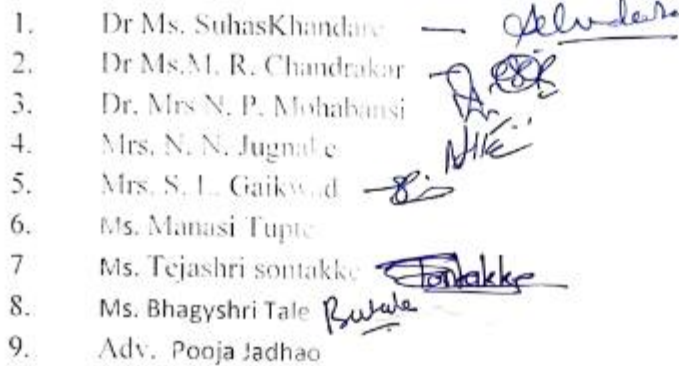 1. Dr Ms. SuhasKhandare —
2. Dr Ms.M. R. Chandrakar
3. Dr. Mrs N. P. Mohabansi
4. Mrs. N. N. Jugnake
5. Mrs. S. L. Gaikwad
6. Ms. Manasi Tupte
7 Ms. Tejashri sontakke Sontakke
8. Ms. Bhagyshri Tale
9. Adv. Pooja Jadhao